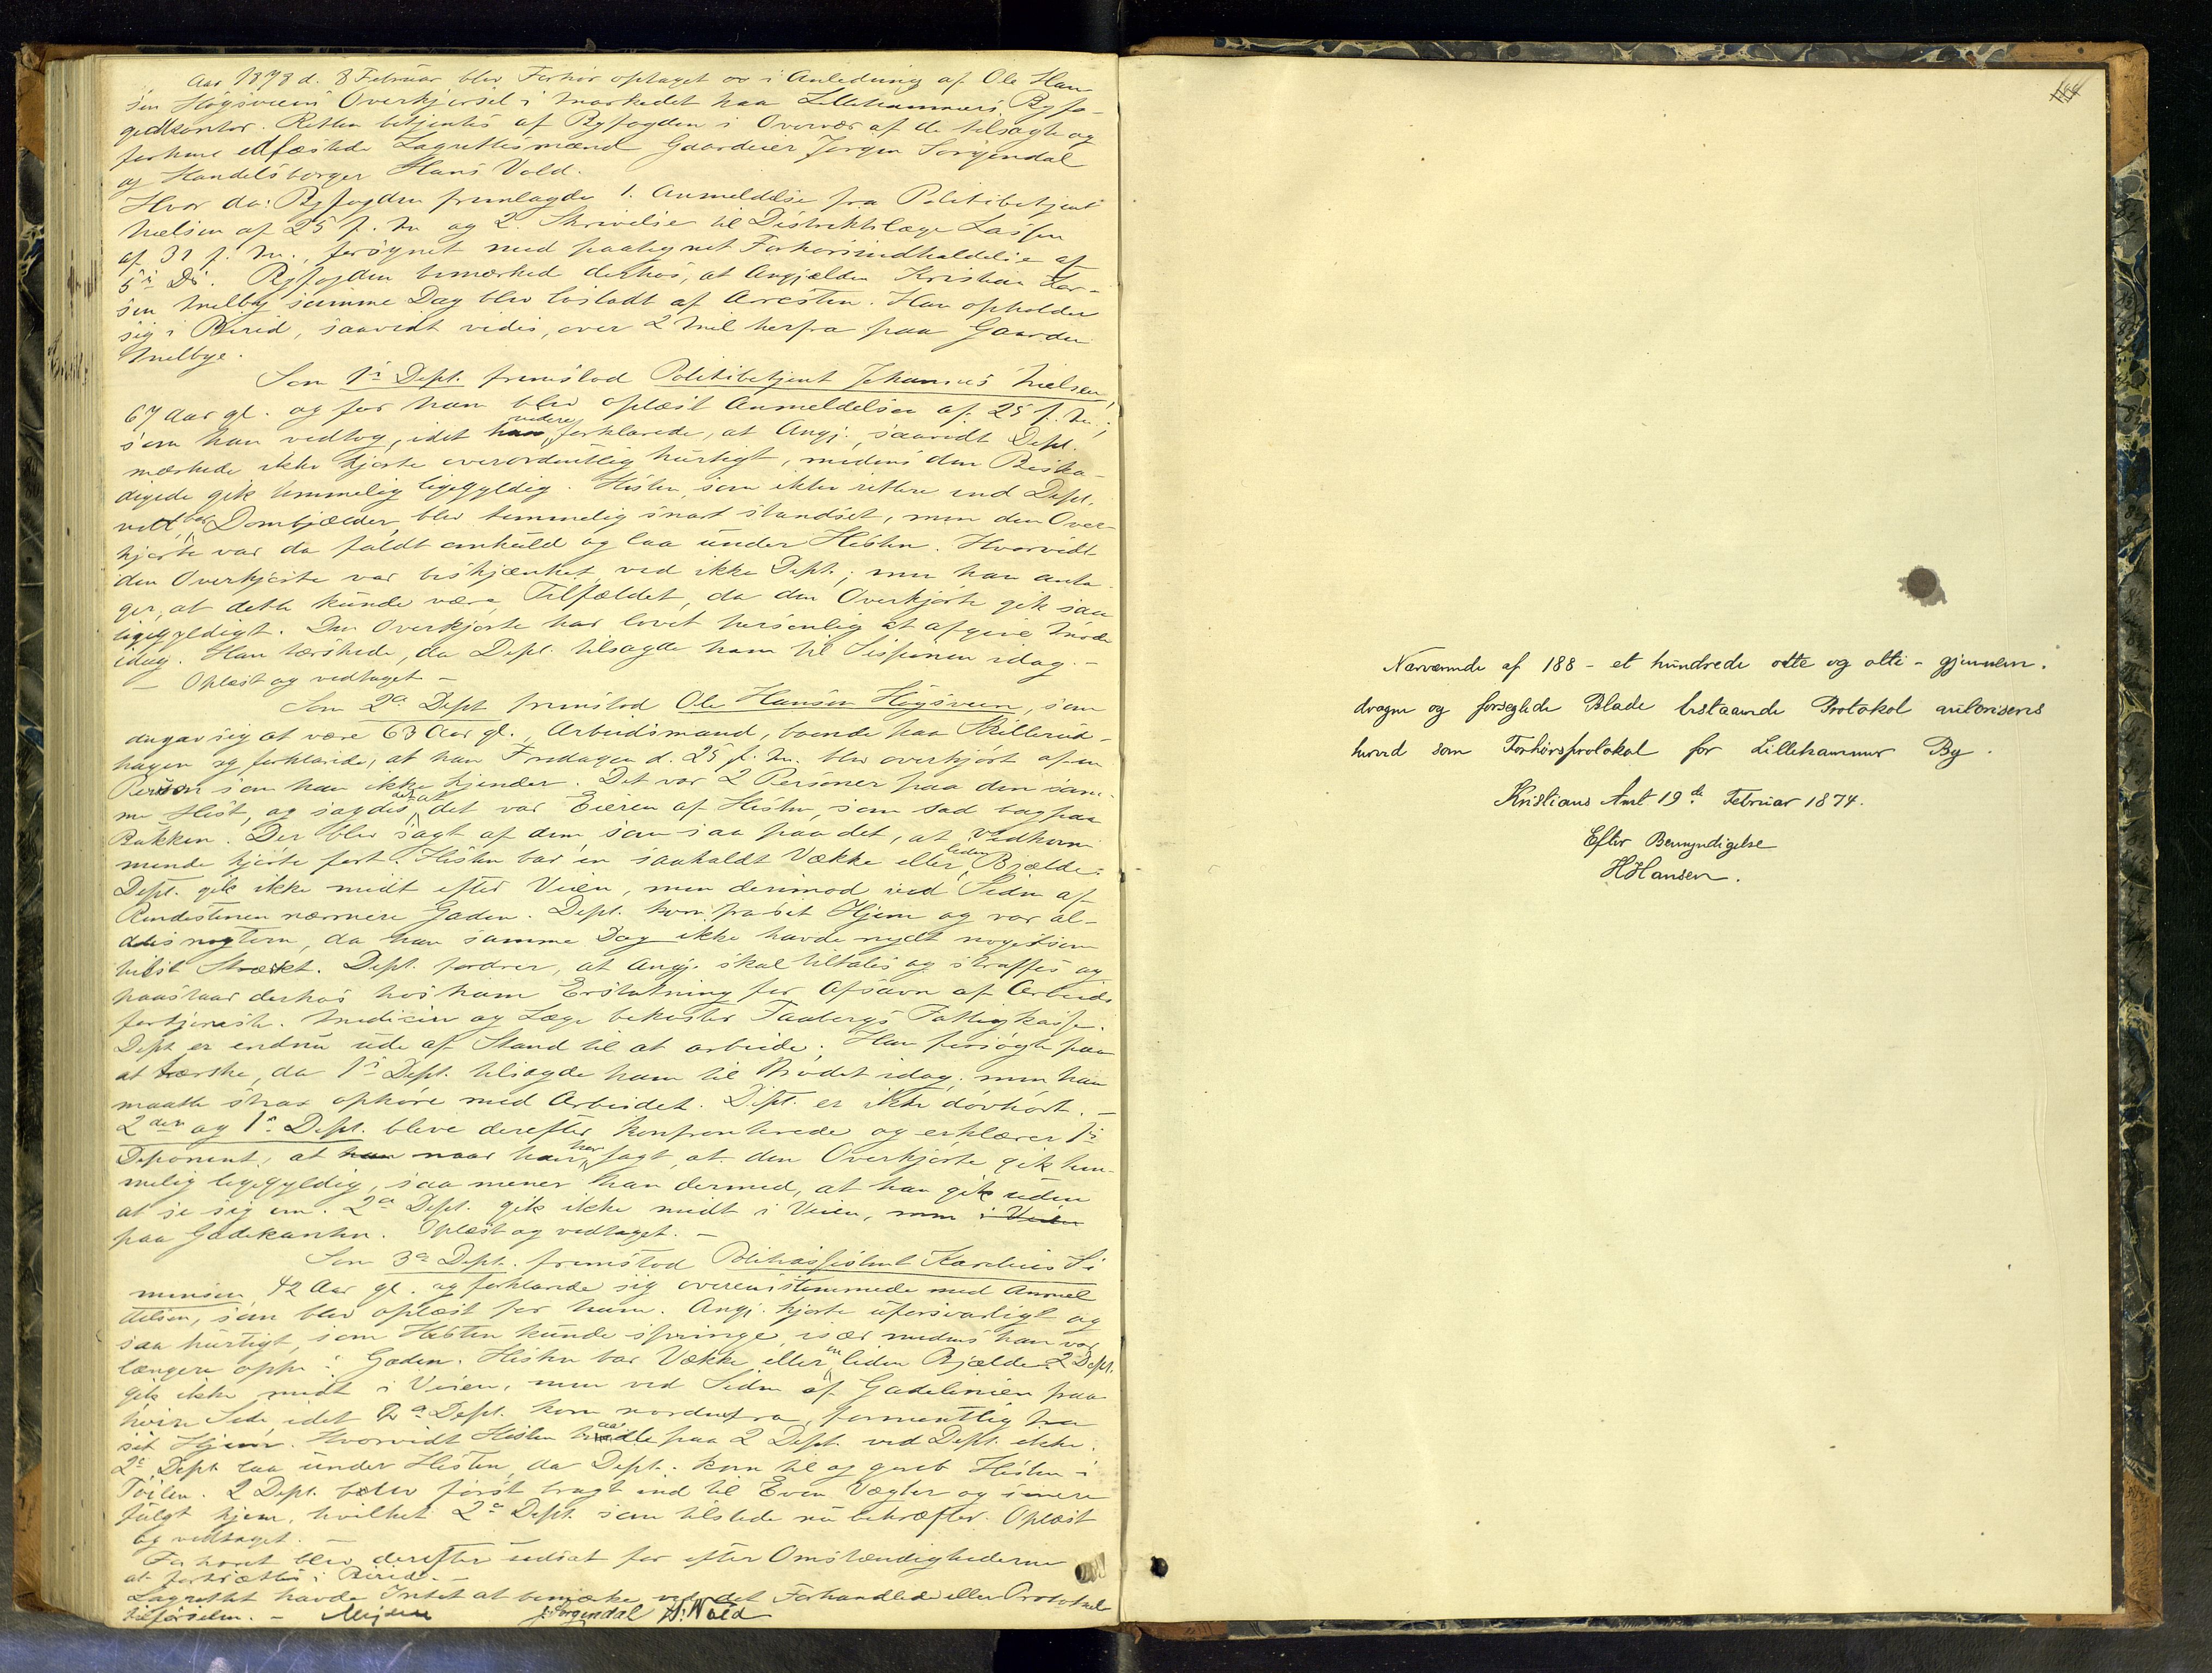 Aar 1878 d. 8 Februar blev Forhør optaget os i Anledning af Ole Han-
sen Høgsveens Overkjørsel i Markedet paa Lillehammers Byfo-
gedkontor. Retten betjentes af Byfogden i Overvær af de tilsagte og
forhen edfæstede Lagrettesmænd Gaardeier Jørgen Sorgendal
og Handelsborger Hans Vold.
Hvor da: Byfogden fremlagde 1. Anmeldelse fra Politibetjent
Nielsen af 25 f. M. og 2. Skrivelse til Distriktslæge Lassen
af 31 f. M., forsynet med paategnet Forhørsindkaldelse af
5te Ds. Byfogden bemærked derhos, at Angjældte Kristian Lar-
sen Melby samme Dag blev løsladt af Arresten. Han opholder
sig i Birid, saavidt vides, over 2 Mil herfra paa Gaarden
Melbye.
Som 1ste Dept. fremstod Politibetjent Johannes Nielsen,
67 Aar gl. og for ham blev oplæst Anmeldelsen af 25 f. M.,
som han vedtog, idet han videre forklarede, at Angj., saavidt Dept.
mærkede ikke kjørte overordentlig hurtigt, medens den Beska-
digede gik temmelig ligegyldig. Hesten, som ikke rettere end Dept.
ved bar Dombjælder, blev temmelig snart standset, men den Over-
kjørte var da faldt omkuld og laa under Hesten. Hvorvidt
den Overkjørte var beskjænket, ved ikke Dept.; men han anta-
ger, at dette kunde være Tilfældet, da den Overkjørte gik saa
ligegyldigt. Den Overkjørte har lovet personlig at afgive Møde
idag. Han tærskede, da Dept. tilsagde ham til Sessionen idag. –
– Oplæst og vedtaget –
Som 2de Dept. fremstod Ole Hansen Høgsveen, som
angav sig at være 63 Aar gl., Arbeidsmand, boende paa Skillerud-
hagen og forklarede, at han Fredagen d. 25 f. M. blev overkjørt af en
Person som han ikke kjender. Det var 2 Personer paa den sam-
me Hest, og sagdes der at det var Eieren af Hesten, som sad bagpaa
Bukken. Der blev sagt af dem, som saa paa det, at Vedkom-
mende kjørte fort. Hesten bar en saakaldt Vække eller liden Bjælde.
Dept. gik ikke midt efter Veien, men derimod ved Siden af
Rendestenen nærmere Gaden. Dept. kom fra sit Hjem og var al-
deles nøgtern, da han samme Dag ikke havde nydt nogetsom
helst Stærkt. Dept. fordrer, at Angj. skal tiltales og straffes og
paastaar derhos hos ham Erstatning for Afsavn af Arbeids
fortjeneste. Medicin og Læge bekostes Faabergs Fattigkasse.
Dept. er endnu ude af Stand til at arbeide. Han forsøgte paa
at tærske, da 1ste Dept. tilsagde ham til Mødet idag, men han
maatte strax ophøre med Arbeidet. Dept. er ikke døvhørt. –
2den og 1ste Dept. bleve derefter konfronterede og erklærer 1ste
Deponent, at han naar han har sagt, at den Overkjørte gik tem-
melig ligegyldig, saa mener han dermed, at han gik uden
at se sig om. 2de Dept. gik ikke midt i Veien, men i Veien
paa Gadekanten. Oplæst og vedtaget. –
Som 3de Dept. fremstod Politiassistent Karelius Si-
mensen, 42 Aar gl. og forklarede sig overensstemmede med Anmel-
delsen, som blev oplæst for ham. Angj. kjørte uforsvarligt og
saa hurtigt, som Hesten kunde springe, især medens han var
længere oppe i Gaden. Hesten bar Vække eller en liden Bjælde. 2 Dept.
gik ikke midt i Veien, men ved Siden af Gadelinien paa
høire Side idet 2de Dept. kom nordenfra, formentlig fra
sit Hjem. Hvorvidt Hesten traadte paa 2 Dept. ved Dept. ikke.
2de Dept. laa under Hesten, da Dept. kom til og greb Hesten i
Tøilen. 2 Dept. blev først bragt ind til Even Vægter og senere
fulgt hjem, hvilket 2de Dept. som tilstede nu bekræfter. Oplæst
og vedtaget. –
Forhøret blev derefter udsat for efter Omstændighederne
at fortsættes i Birid. –
Lagrettet havde Intet at bemærke ved det Forhandlede eller Protokol-
tilførselen. – J. Sorgendal H. Vold
188
Nærværende af 188 – et hundrede otte og otti – gjennem-
dragne og forseglede Blade bestaaende Protokol autoriseres
herved som Forhørsprotokol for Lillehammer By.
Kristians Amt 19de Februar 1874.
Efter Bemyndigelse
HHansen.